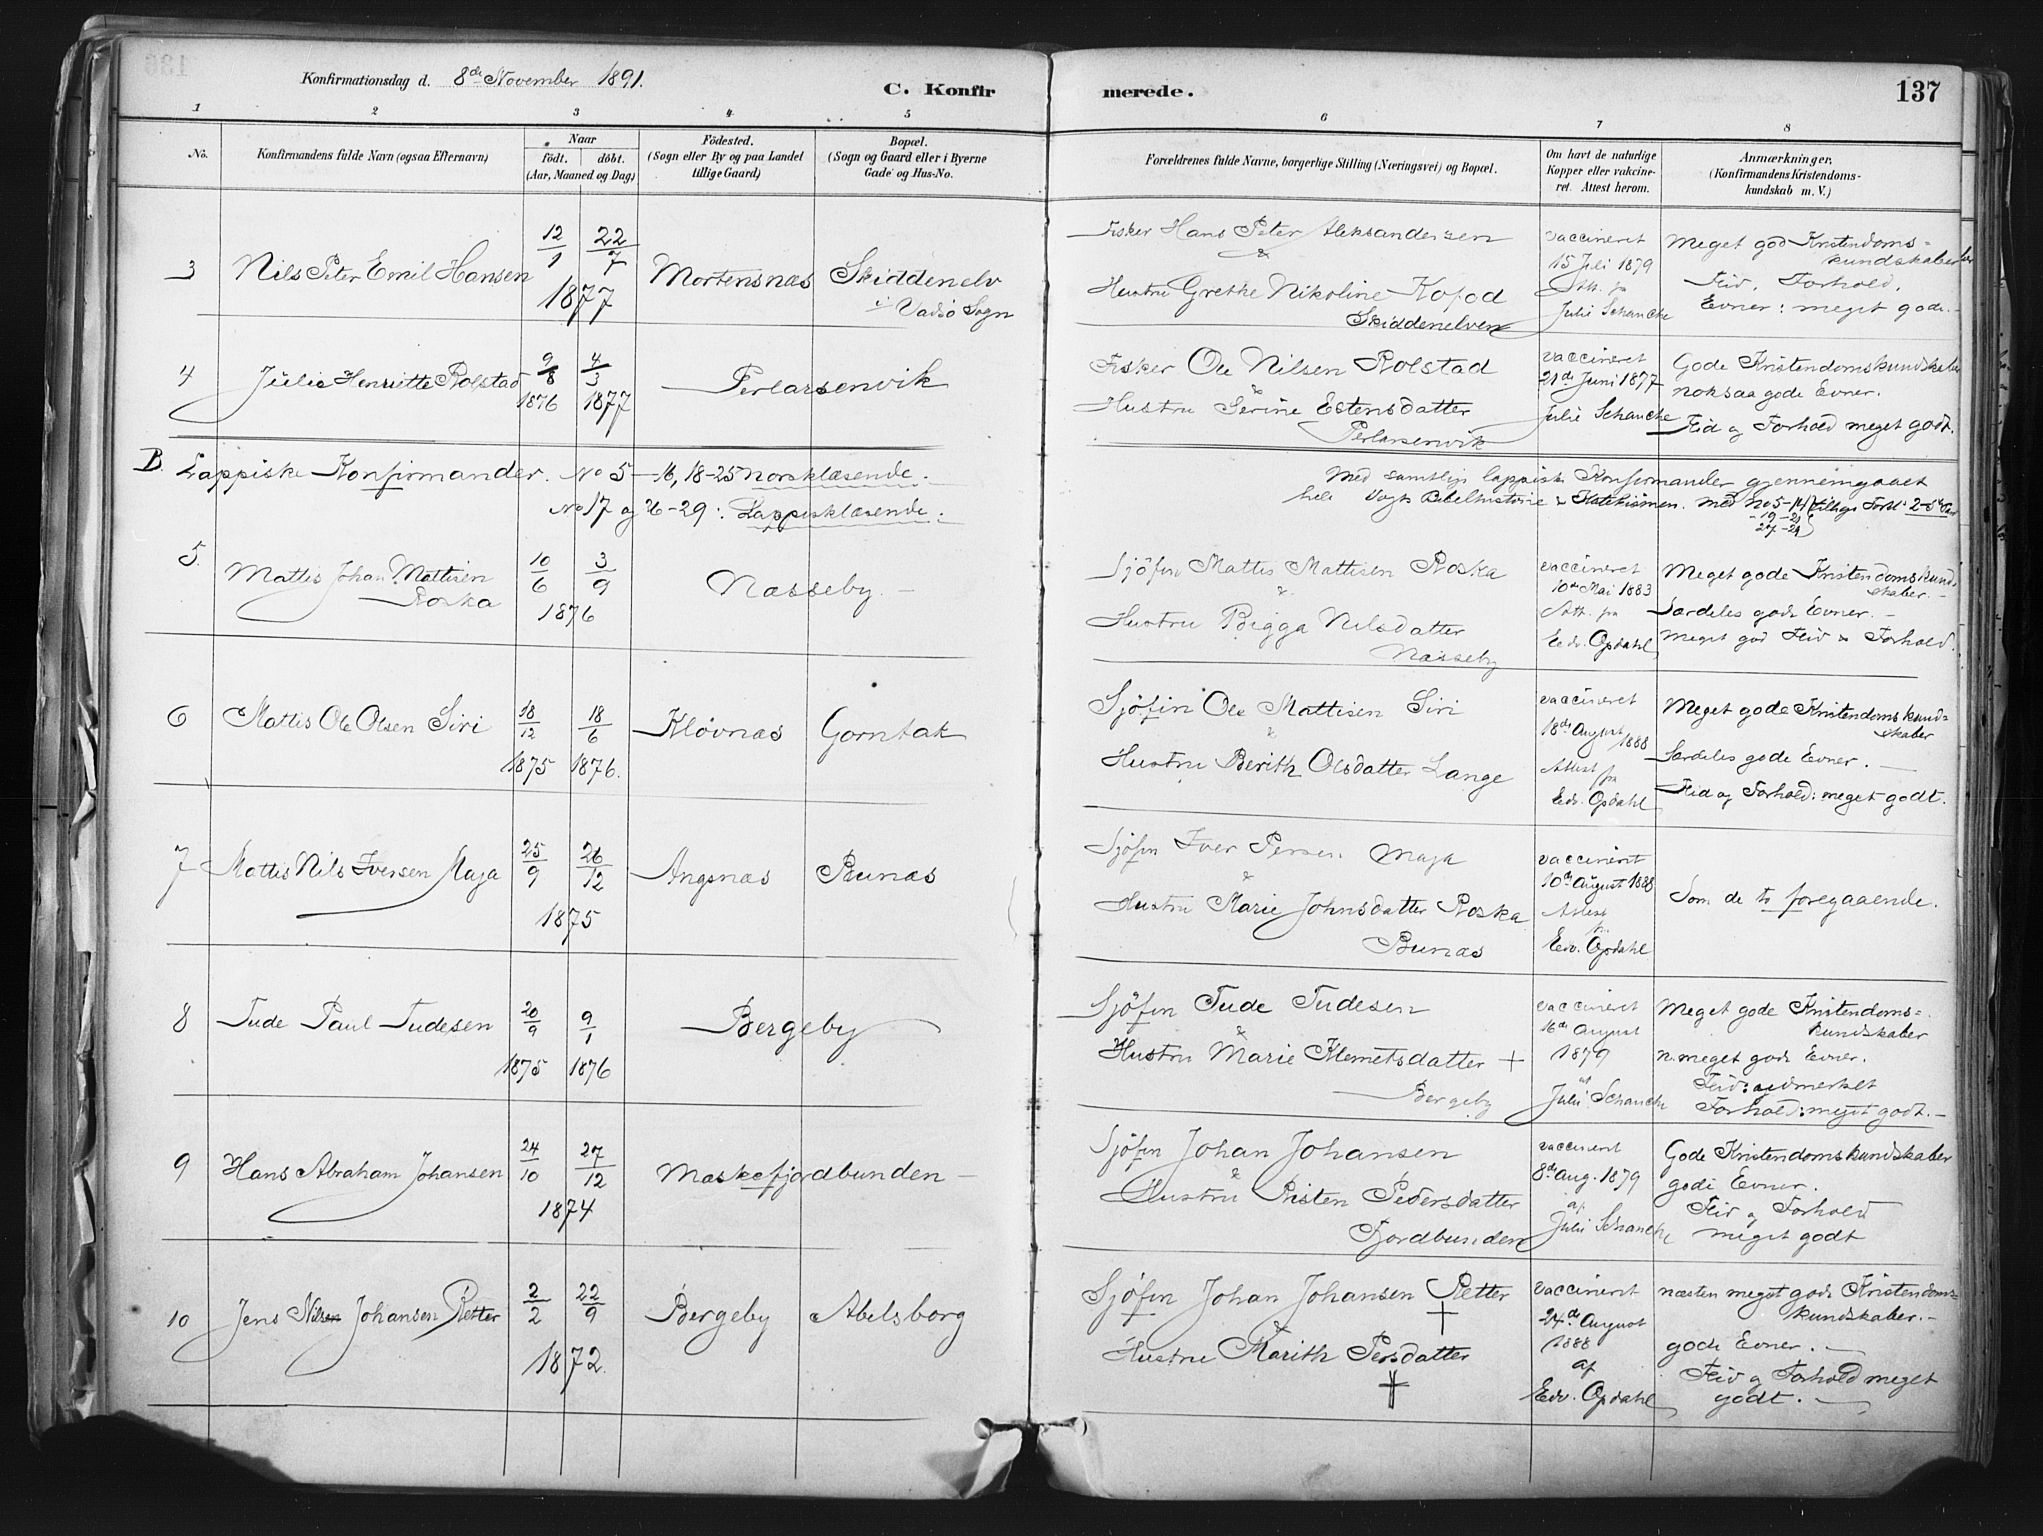 Konfirmationsdag d. 8de November 1891.
C. Konfirmerede.
137
1 2 3 4 5 6 7 8
No.
Konfirmandens fulde Navn (ogsaa Efternavn)
Naar
födt. döbt.
(Aar, Maaned og Dag)
Födested.
(Sogn eller By og paa Landet
tillige Gaard)
Bopæl.
(Sogn og Gaard eller i Byerne
Gade og Hus-No.
Forældrenes fulde Navne, borgerlige Stilling (Næringsvei) og Bopæl.
Om havt de naturlige
Kopper eller vakcine-
ret. Attest herom.
Anmærkninger,
(Konfirmandens Kristendoms-
kundskab m. V.)
3
Nils Peter Emil Hansen
12/1 22/7
1877
Mortensnæs
Skiddenelv
i Vadsö Sogn
Fisker Hans Peter Aleksandersen
&
Hustru Grethe Nikoline Kofod
Skiddenelven
vaccineret
15 Juli 1879
Att. fra
Julie Schancke
Meget god Kristendoms-
kundskaber
Flid, Forhold,
Evner: meget gode.-
4
Julie Henriette Rolstad
9/8 4/3
1876 1877
Perlarsenvik
Fisker Ole Nilsen Rolstad
&
Hustru Serine Estensdatter
Perlarsenvik
vaccineret
21de Juni 1877
Julie Schancke
Gode Kristendomskundskaber
noksaa gode Evner.
Flid og Forhold meget godt.
B. Lappiske Konfirmander. No 5-16, 18-25 norsklæsende.
No 17 og 26-29: Lappisklæsende.
Med samtlige lappiske Konfirmander gjennemgaaet
hele Vogts Bibelhistorie & Katekismen. Med No 5-14 tillige Forkl.
-19-21
27-29
5.
Mattis Johan Mattisen
Roska
10/6 3/9
1876
Næsseby.
Sjöfin Mattis Mattisen Roska
&
Hustru Bigga Nilsdatter
Næsseby
vaccineret
10de Mai 1883
Att. fra
Edv. Opdahl
Meget gode Kristendomskund-
skaber.-
Særdeles gode Evner.-
meget god Flid & Forhold.
6
Mattis Ole Olsen Siri
18/12 18/6
1875 1876.
Klövnæs
Gorntak
Sjöfin Ole Mattisen Siri
&
Hustru Berith Olsdatter Lange
vaccineret
18de August
1888
Attest fra
Edv. Opdahl
Meget gode Kristendomskund-
skaber
Særdeles gode Evner.-
Flid og Forhold: meget godt.
7
Mattis Nils Iversen Maja
25/9 26/12
1875
Angsnæs
Bunæs
Sjöfin Iver Persen Maja
&
Hustru Marie Johnsdatter Roska
Bunæs
vaccineret
10de August 1888
Attest
fr.
Edv. Opdahl
Som de to foregaaende.
8
Tude Paul Tudesen
20/9 9/1
1875 1876
Bergeby
Sjöfin Tude Tudesen
&
Hustru Marie Klemetsdatter +
Bergeby
vaccineret
16de August
1879
af
Julie Schancke
Meget gode Kristendoms-
kundskaber
n. meget gode Evner.
Flid: udmerket
Forhold: meget godt.-
9
Hans Abraham Johansen
24/10 27/12
1874
Mæskefjordbunden
Sjöfin Johan Johansen
&
Hustru Risten Pedersdatter
Fjordbunden
vaccineret
8de Aug. 1879
af
Julie Schancke
Gode Kristendomskundskaber
gode Evner.
Flid og Forhold
meget godt
10
Jens Nilsen Johansen Retter
2/2 22/9
1872.
Bergeby
Abelsborg
Sjöfin Johan Johansen Retter
†
&
Hustru Marith Persdatter
†
vaccineret
24de August
1888
af
Edv. Opdahl
næsten meget gode Kristendoms-
kundskaber.-
gode Evner.-
Flid og Forhold meget
godt.-